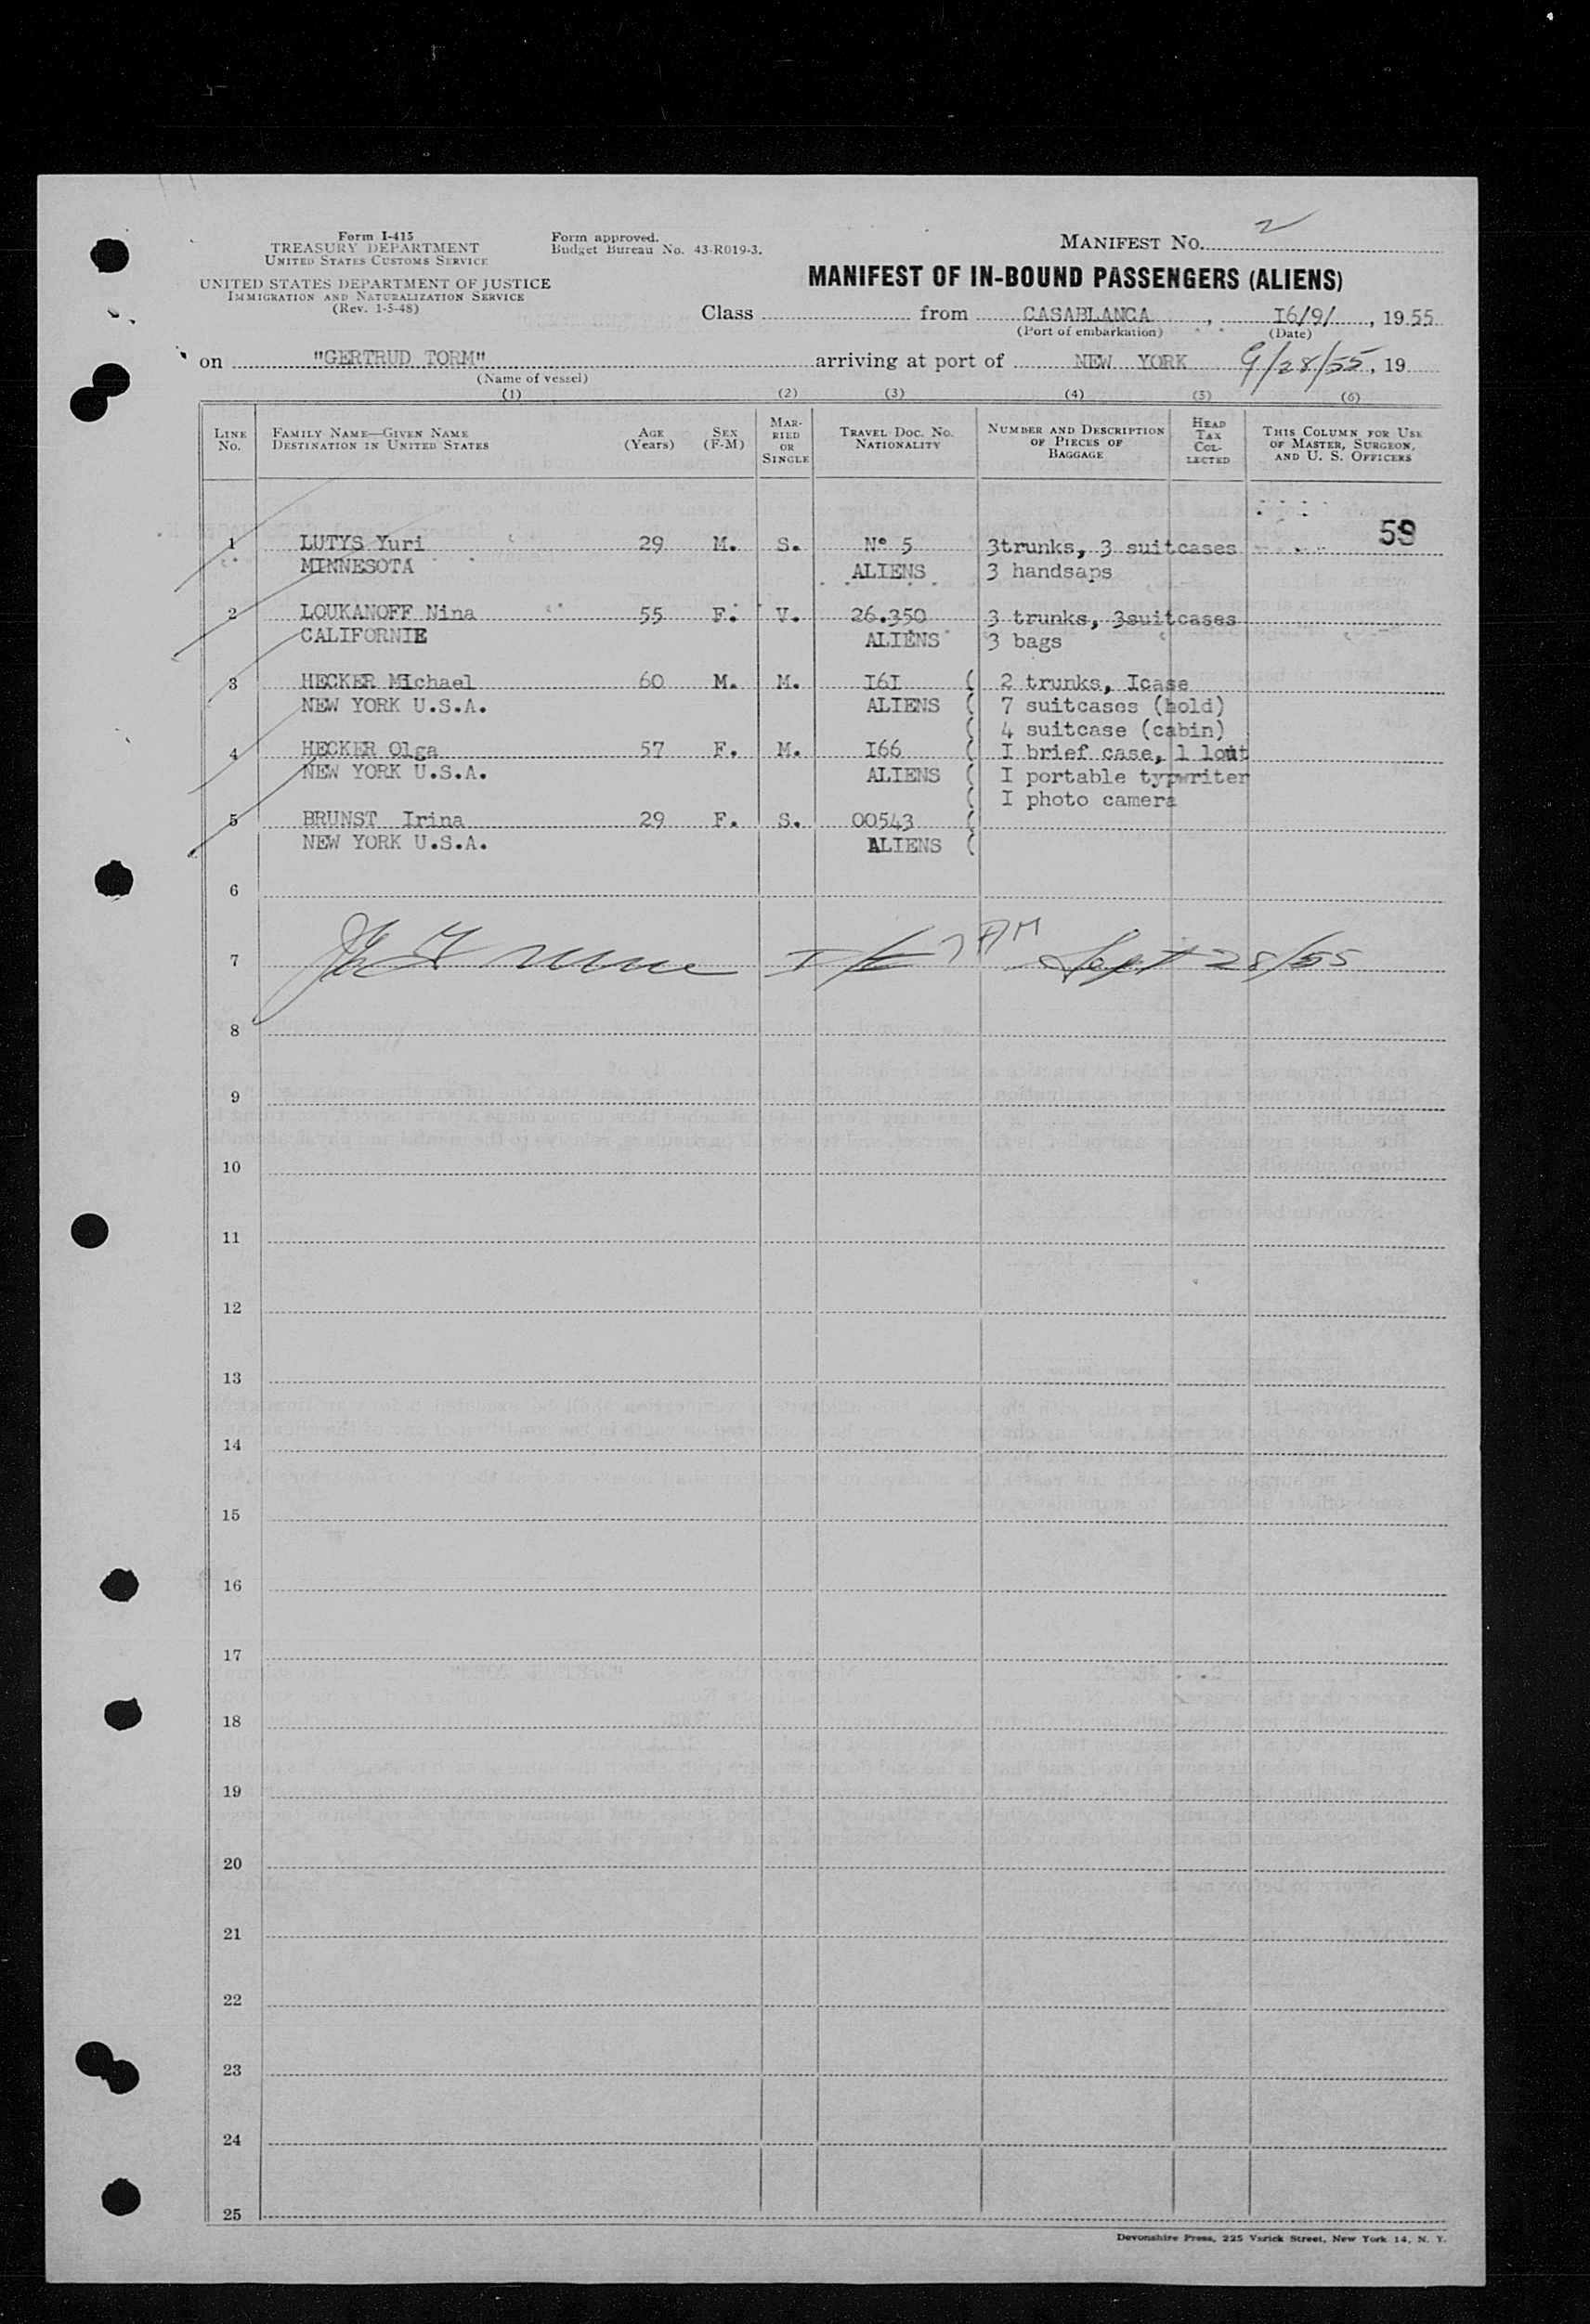 Form I-415
TREASURY DEPARTMENT
UNITED STATES CUSTOMS SERVICE
UNITED STATES DEPARTMENT OF JUSTICE
IMMIGRATION AND NATURALIZATION SERVICE
(Rev. 1-5-48)
Form approved.
Budget Bureau No. 43-R019-3.
MANIFEST NO. 2
MANIFEST OF IN-BOUND PASSENGERS (ALIENS)
Class from CASABLANCA, I6/9/, 1955
(Port of embarkation) (Date)
on "GERTRUD TORM" arriving at port of NEW YORK 9/28/55, 19
(Name of vessel)
(1) (2) (3) (4) (5) (6)
LINE No. FAMILY NAME—GIVEN NAME DESTINATION IN UNITED STATES AGE (Years) SEX (F-M) MARRIED OR SINGLE TRAVEL DOC. NO. NATIONALITY NUMBER AND DESCRIPTION OF PIECES OF BAGGAGE HEAD TAX COLLECTED THIS COLUMN FOR USE OF MASTER, SURGEON, AND U. S. OFFICERS
1 LUTYS Yuri 29 M. S. N° 5 3trunks, 3 suitcases 59
MINNESOTA ALIENS 3 handsaps
2 LOUKANOFF Nina 55 F. V. 26.350 3 trunks, 3suitcases
CALIFORNIE ALIENS 3 bags
3 HECKER Michael 60 M. M. I6I ( 2 trunks, Icase
NEW YORK U.S.A. ALIENS ( 7 suitcases (hold)
( 4 suitcase (cabin)
4 HECKER Olga 57 F. M. I66 ( I brief case, 1 lout
NEW YORK U.S.A. ALIENS ( I portable typwriter
( I photo camera
5 BRUNST Irina 29 F. S. 00543 (
NEW YORK U.S.A. ALIENS (
6
7 7 AM Sept 28/55
8
9
10
11
12
13
14
15
16
17
18
19
20
21
22
23
24
25
Devonshire Press, 225 Varick Street, New York 14, N. Y.